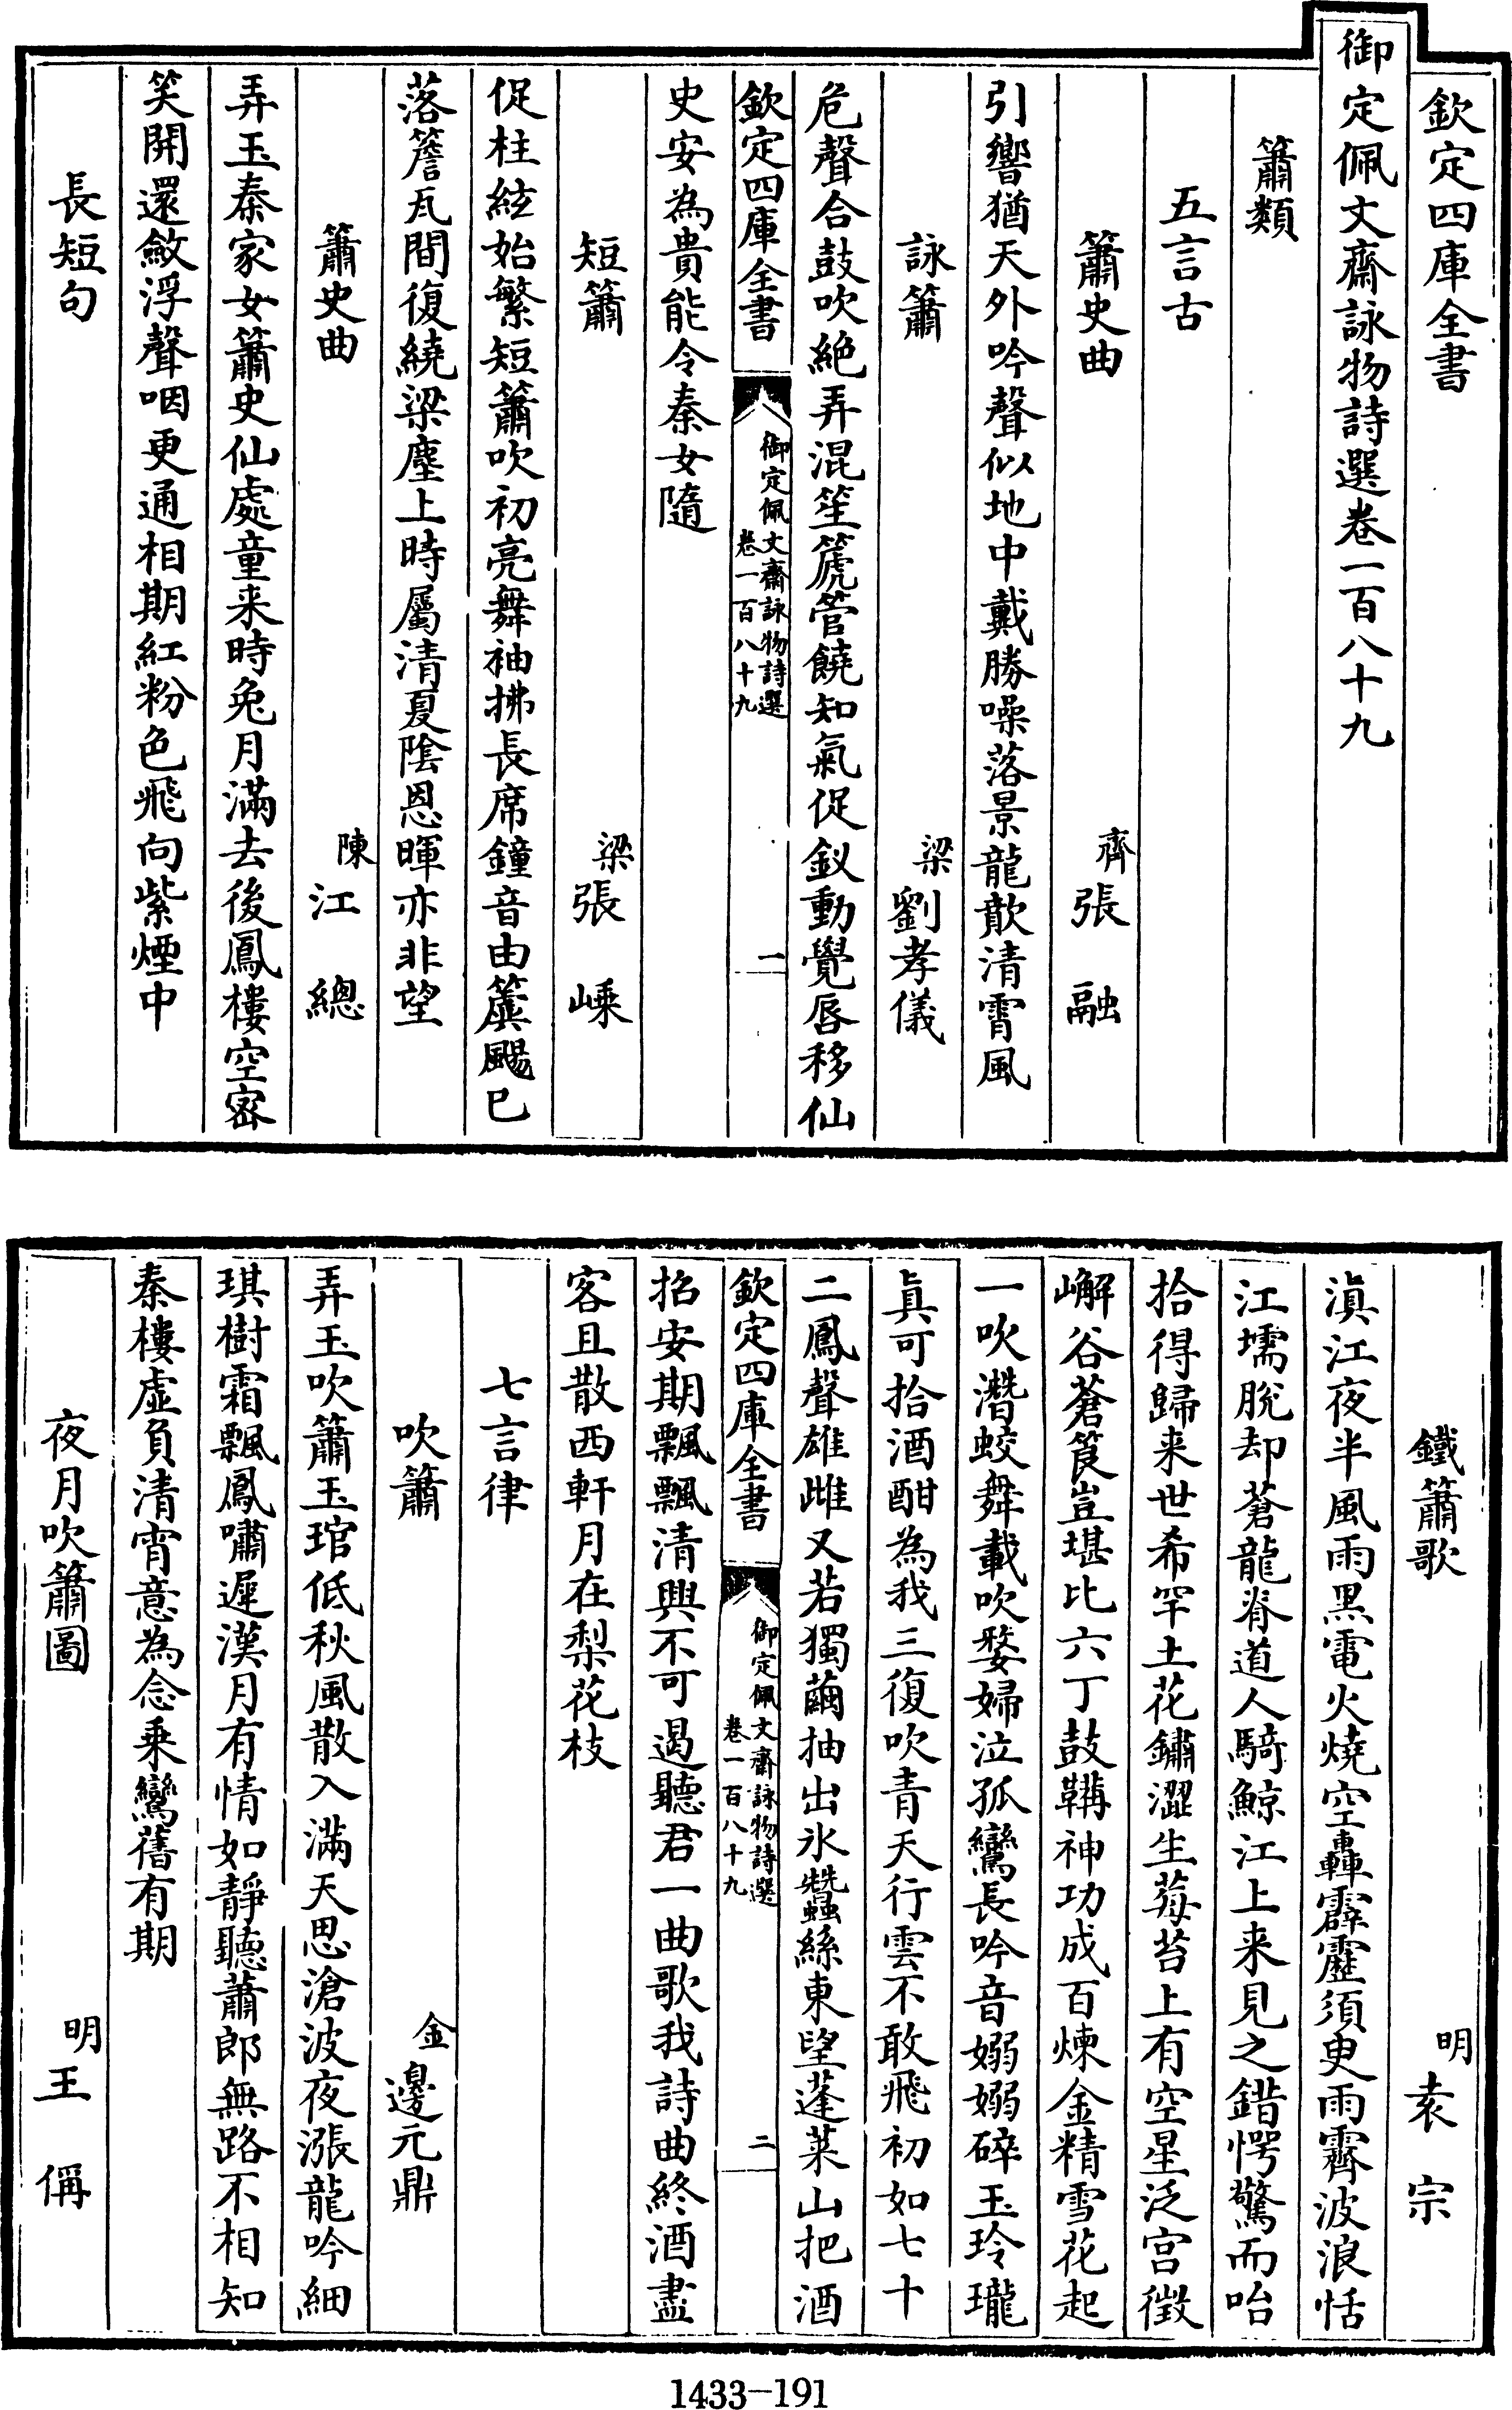 欽定四庫全書
御定佩文齋詠物詩選卷一百八十九
簫類
五言古
簫史曲 齊張融
引響猶天外吟聲似地中戴勝噪落景龍歕清霄風
詠簫 梁劉孝儀
危聲合鼓吹絶弄混笙篪管饒知氣促釵動覺唇移仙
欽定四庫全書 御定佩文齋詠物詩選 卷一百八十九 一
史安為貴能令秦女隨
短簫 梁張嵊
促柱絃始繁短簫吹初亮舞袖拂長席鐘音由簴颺已
落簷瓦間復繞梁塵上時屬清夏陰恩暉亦非望
簫史曲 陳江總
弄玉秦家女簫史仙處童来時兔月滿去後鳳樓空密
笑開還斂浮聲咽更通相期紅粉色飛向紫煙中
長短句
鐵簫歌 明袁宗
滇江夜半風雨黒電火燒空轟霹靂須臾雨霽波浪恬
江壖脫却蒼龍脊道人騎鯨江上来見之錯愕驚而咍
拾得歸来世希罕土花鏽澀生莓苔上有空星泛宫徵
嶰谷蒼筤豈堪比六丁鼓鞲神功成百煉金精雪花起
一吹潛蛟舞載吹嫠婦泣孤鸞長吟音嫋嫋碎玉玲瓏
真可拾酒酣為我三復吹青天行雲不敢飛初如七十
二鳳聲雄雌又若獨繭抽出氷蠶絲東望蓬莱山把酒
欽定四庫全書 御定佩文齋詠物詩選 卷一百八十九 二
招安期飄飄清興不可遏聽君一曲歌我詩曲終酒盡
客且散西軒月在梨花枝
七言律
吹簫 金邊元鼎
弄玉吹簫玉琯低秋風散入滿天思滄波夜漲龍吟細
琪樹霜飄鳳嘯遲漢月有情如靜聽蕭郎無路不相知
秦樓虚負清宵意為念乗鸞舊有期
夜月吹簫圖 明王偁
1433-191